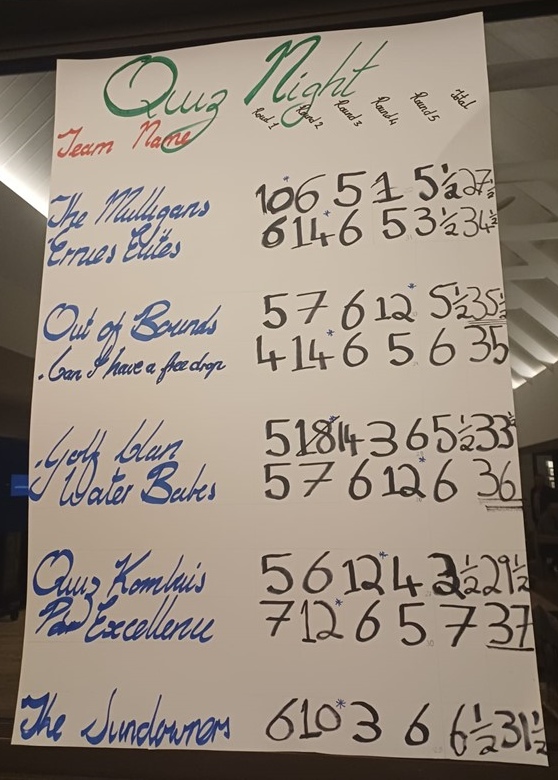 Quiz Night
Team Name Round 1 Round 2 Round 3 Round 4 Round 5 Total
The Mulligans 10* 6 5 1 5½ 27½
Ernies Elites 6 14* 6 5 3½ 34½
Out of Bounds 5 7 6 12* 5½ 35½
. Can I have a free drop 4 14* 6 5 6 35
. Golf Clan 5 14* 3 6 5½ 33½
Water Babes 5 7 6 12* 6 36
Quiz Kombuis 5 6 12* 4 3½ 29½
Par Excellence 7 12* 6 5 7 37
The Sundowners 6 10* 3 6 6½ 31½